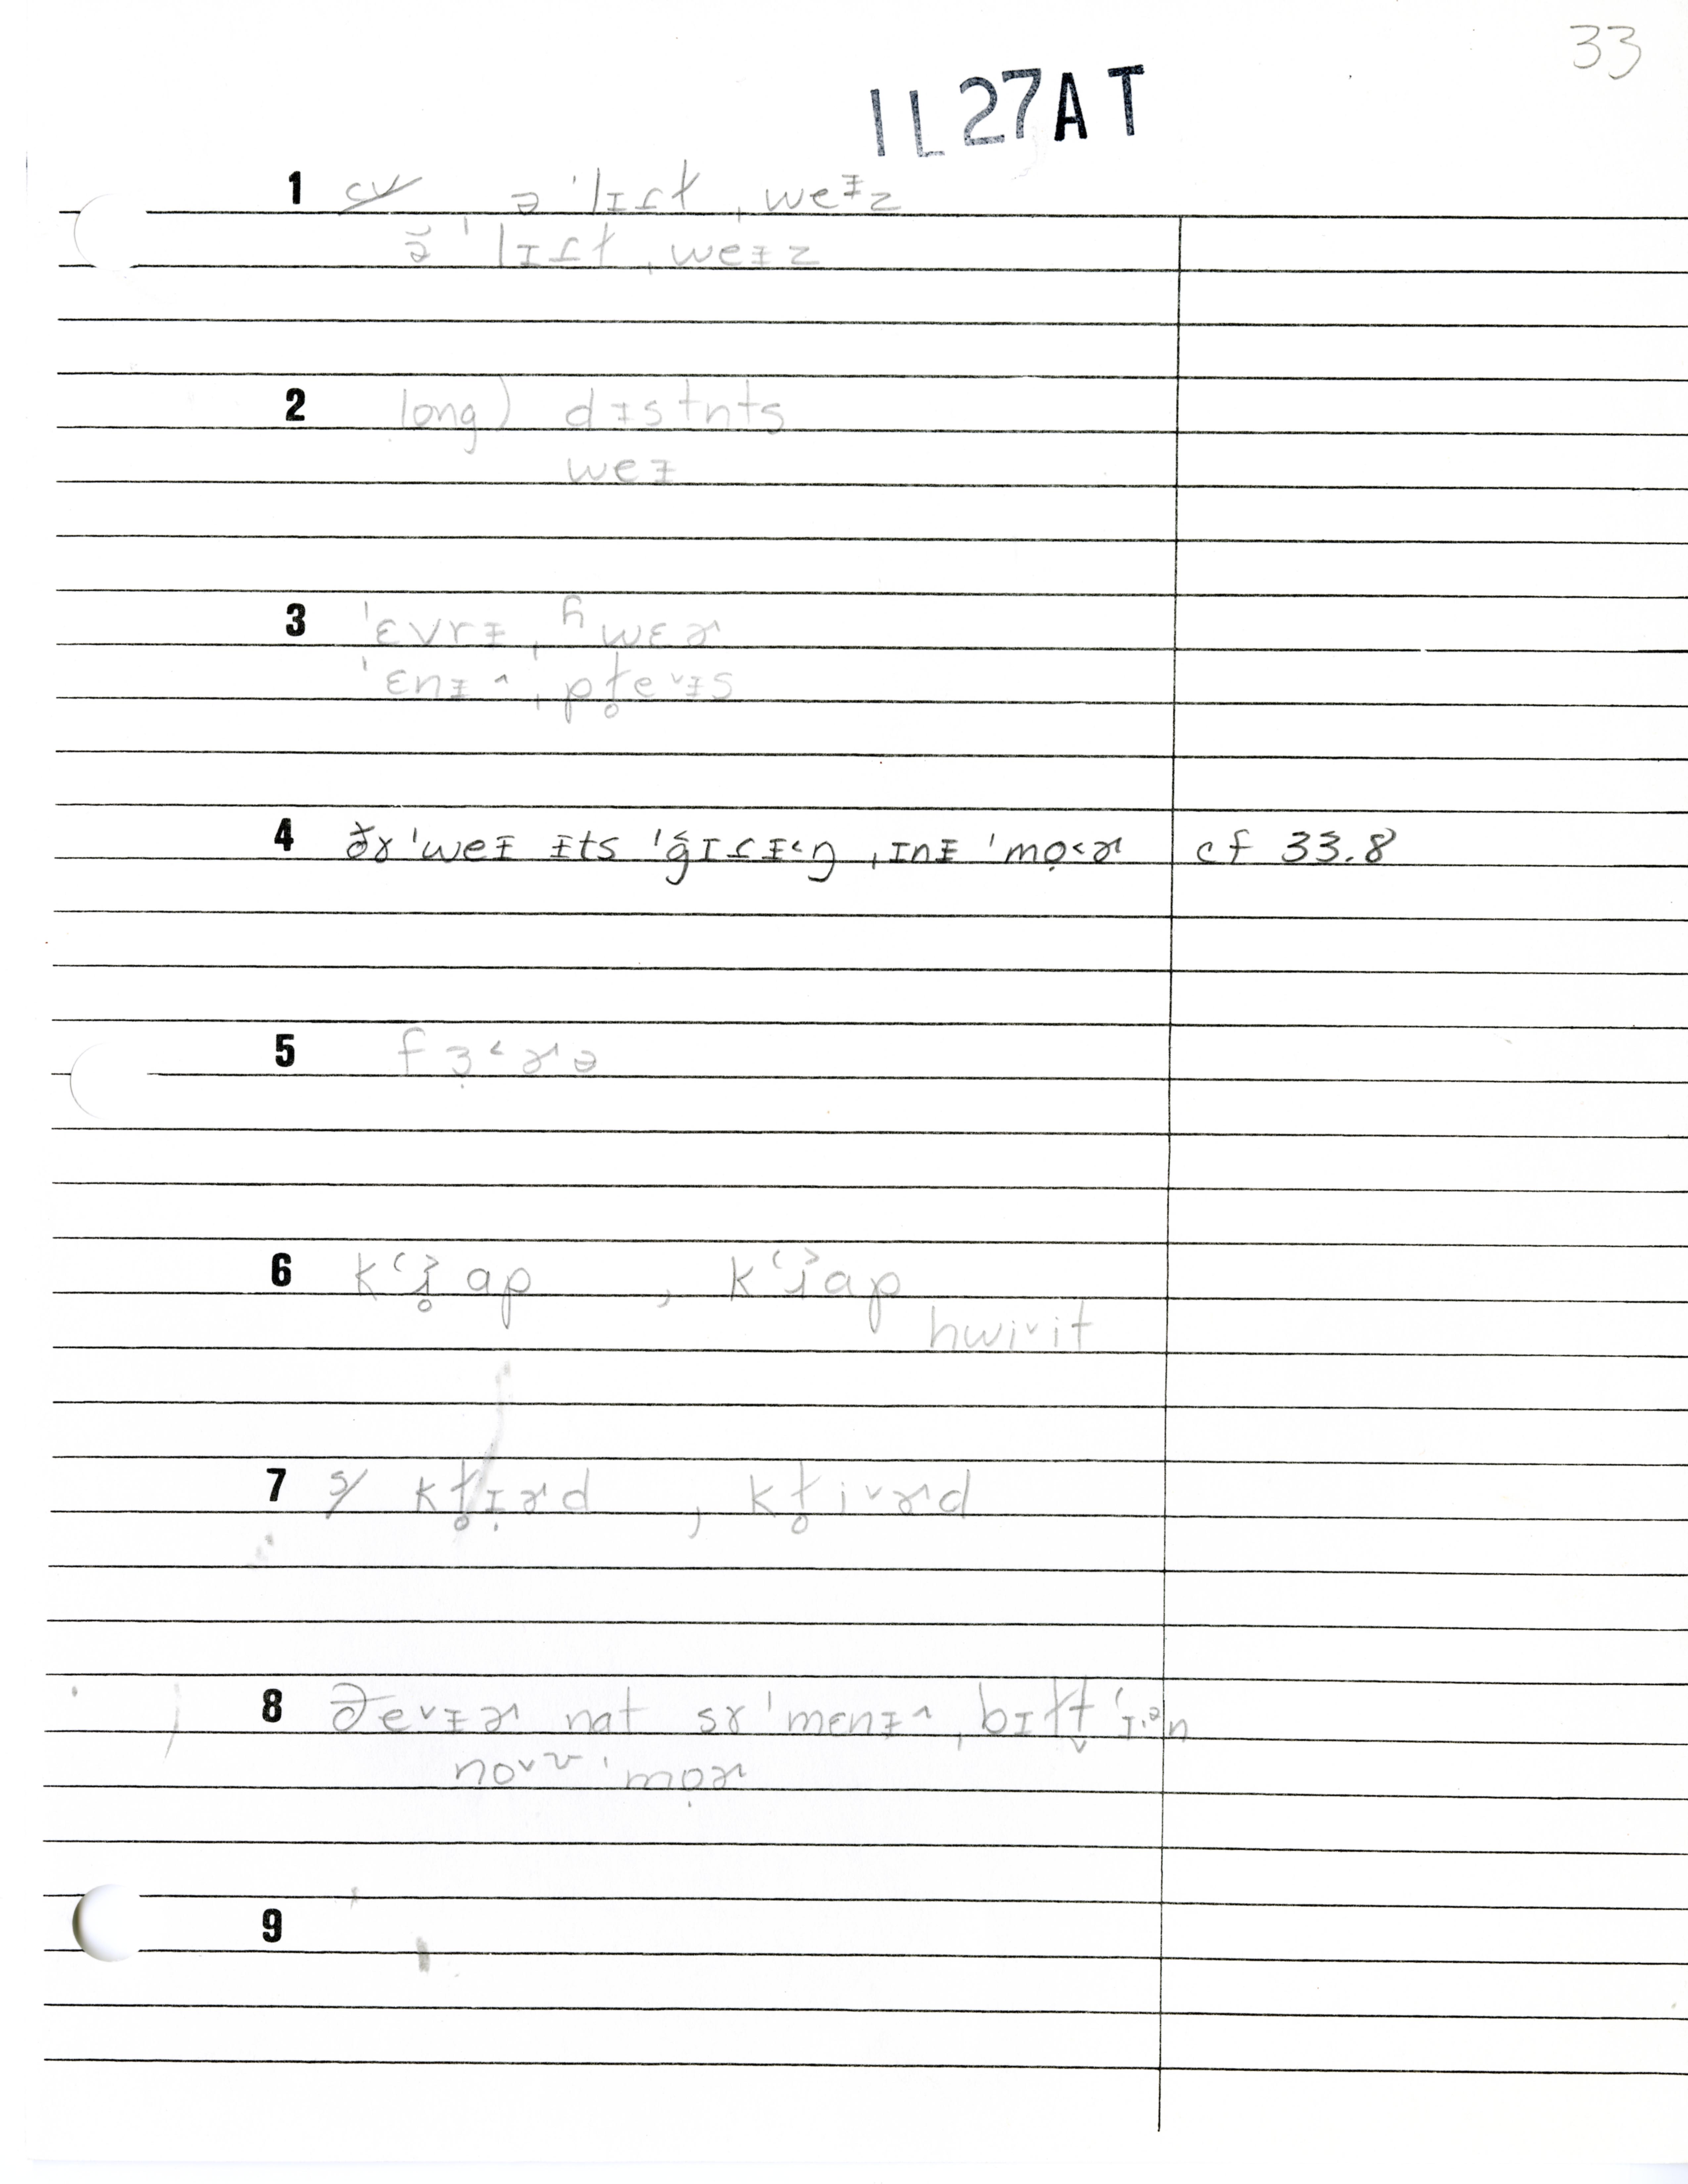 33
IL27AT
1 cv ə ˈlɪɾɫ ˌweᵻz
ə̆ ˈlɪɾɫ ˌweᵻz
2 long) dᵻstnts
weᵻ
3 ˈɛvrᵻ ˌhwɛɚ
ˈɛnᵻ˄ ˌpɫ̥e˅ᵻs
4 ðɤ ˈweᵻ ᵻts ˈgɪɾᵻ˂ŋ ˌɪnᵻ ˈmọ˂ɚ cf 33.8
5 fɜ̣˂ɚə
6 kʻj̥ap , kʻjap
hwi˅it
7 s/ kɫ̥ɪ̣ɚd , kɫ̥i˅ɚd
8 ðe˅ᵻɚ nat sɤˈmɛnᵻ˄ ˌbɪɫt
no˅ʊ ˈmọɚ
9